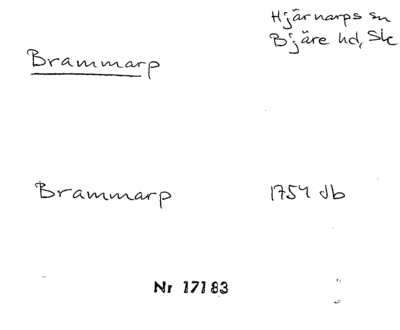 Hjärnarps sn
Bjäre hd, Sk
Brammarp
Brammarp 1754 db
Nr 17183